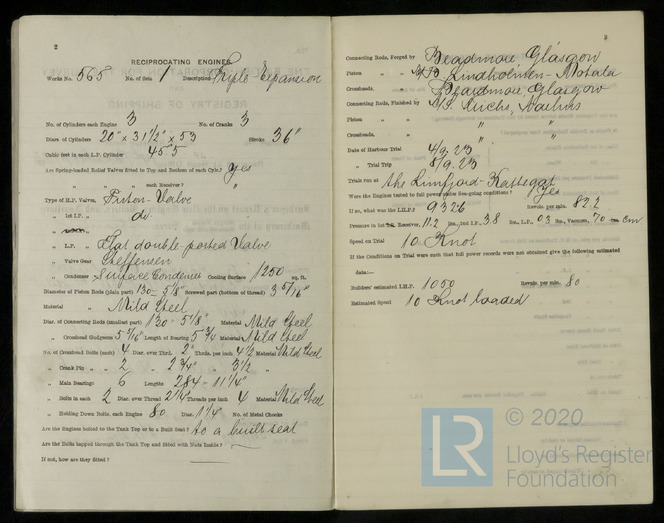 2
RECIPROCATING ENGINES.
Works No. 565 No. of Sets 1 Description Triple Expansion
No. of Cylinders each Engine 3 No. of Cranks 3
Diars. of Cylinders 20" x 31½" x 53 Stroke 36"
Cubic feet in each L.P. Cylinder 45'5
Are Spring-loaded Relief Valves fitted to Top and Bottom of each Cylr.? Yes
" " " each Receiver? "
Type of H.P. Valves, Piston-Valve
" 1st I.P. " do.
"
" L.P. " Flat double ported Valve
" Valve Gear
" Condenser Surface Condenser Cooling Surface 1250 sq. ft.
Diameter of Piston Rods (plain part) 130 - 5⅛" Screwed part (bottom of thread) 3 5/16"
Material " Mild Steel
Diar. of Connecting Rods (smallest part) 130 - 5⅛" Material Mild Steel
" Crosshead Gudgeons 5 5/16" Length of Bearing 5 3/4 Material Mild Steel
No. of Crosshead Bolts (each) 4 Diar. over Thrd. 2" Thrds. per inch 4½ Material Mild Steel
" Crank Pin " " 2 " 2¾" " 3½ "
" Main Bearings 6 Lengths 284 - 11¼"
" Bolts in each 2 Diar. over Thread 2¼" Threads per inch 4 Material Mild Steel
" Holding Down Bolts, each Engine 80 Diar. 1¼" No. of Metal Chocks
Are the Engines bolted to the Tank Top or to a Built Seat? to a built seat
Are the Bolts tapped through the Tank Top and fitted with Nuts Inside?
If not, how are they fitted?
3
Connecting Rods, Forged by Beardmore, Glasgow
Piston " Lindholmen - Motala
Crossheads, " Beardmore, Glasgow
Connecting Rods, Finished by
Piston " "
Crossheads, " "
Date of Harbour Trial 4/9.23
" Trial Trip 8/9.23
Trials run at the Limfjord - Kattegat
Were the Engines tested to full power under Sea-going conditions? Yes
If so, what was the I.H.P.? 932.6 Revols. per min. 82.2
Pressure in 1st Receiver, 11.2 lbs., 2nd I.P. 3.8 lbs., L.P. 0.3 lbs., Vacuum, 70 cm
Speed on Trial 10 Knot
If the Conditions on Trial were such that full power records were not obtained give the following estimated
data:—
Builders' estimated I.H.P. 1050 Revols. per min. 80
Estimated Speed 10 Knot loaded
© 2020
LR
Lloyd's Register
Foundation